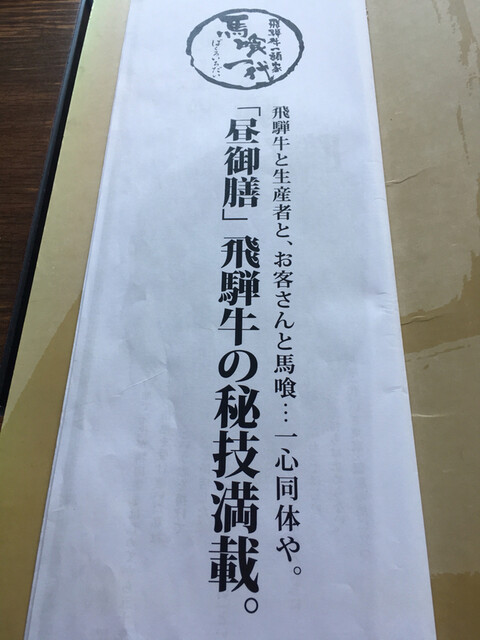 飛騨牛一頭家
馬喰一代
ばくろいちだい
飛騨牛と生産者と、お客さんと馬喰…一心同体や。
「昼御膳」飛騨牛の秘技満載。